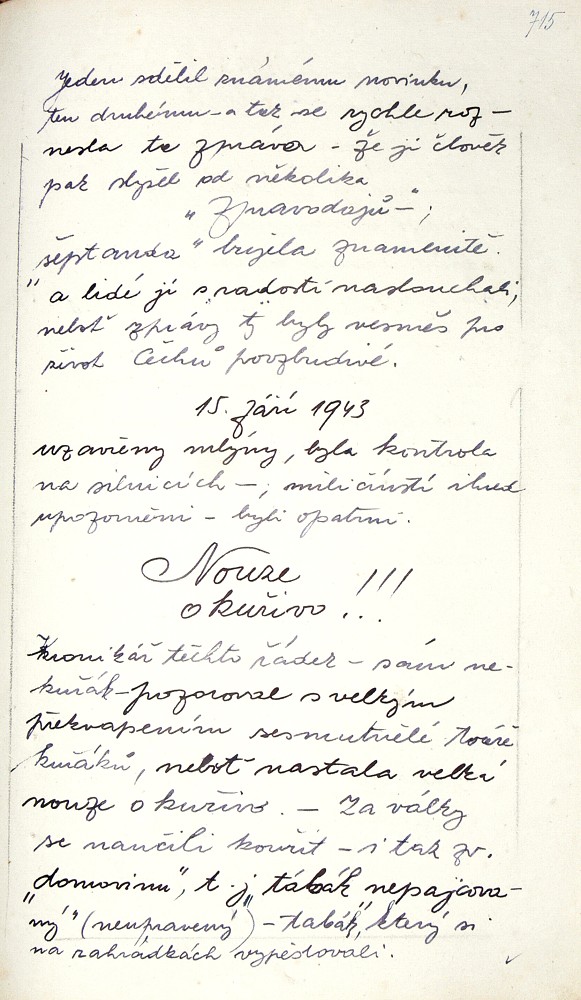 715
Jeden sdělil známému novinku,
ten druhému - a tak se rychle roz-
nesla ta zpráva - že ji člověk
pak slyšel od několika
"Zpravodajů -";
"šeptanda" bujela znamenitě.
a lidé jí s radostí naslouchali,
neboť zprávy ty byly vesměs pro
život Čechů povzbudivé.
15. září 1943
uzavřeny mlýny, byla kontrola
na silnicích -; mličínští ihned
upozorněni - byli opatrní.
Nouze
o kuřivo !!!
Kronikář těchto řádek - sám ne-
kuřák - pozoroval s velkým
překvapením sesmutnělé tváře
kuřáků, neboť nastala velká
nouze o kuřivo. - Za války
se naučili kouřit - i tak zv.
"domovinu", t. j. tabák "nepajcova-
ný" (neupravený) - tabák, který si
na zahrádkách vypěstovali.